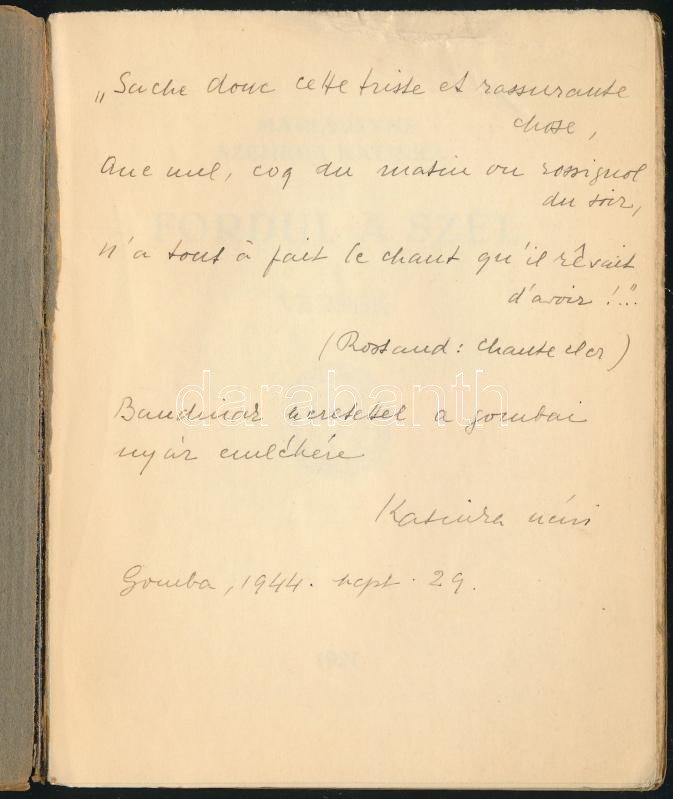 „Sache donc cette triste et rassurante
chose,
Que nul, coq du matin ou rossignol
du soir,
n'a tout à fait le chant qu'il rêvait
d'avoir!..."
(Rostand: Chantecler)
darabanth
szeretettel a gombai
nyár emlékére
Katinka néni
Gomba, 1944. szept. 29.
FORDUL A SZÉL